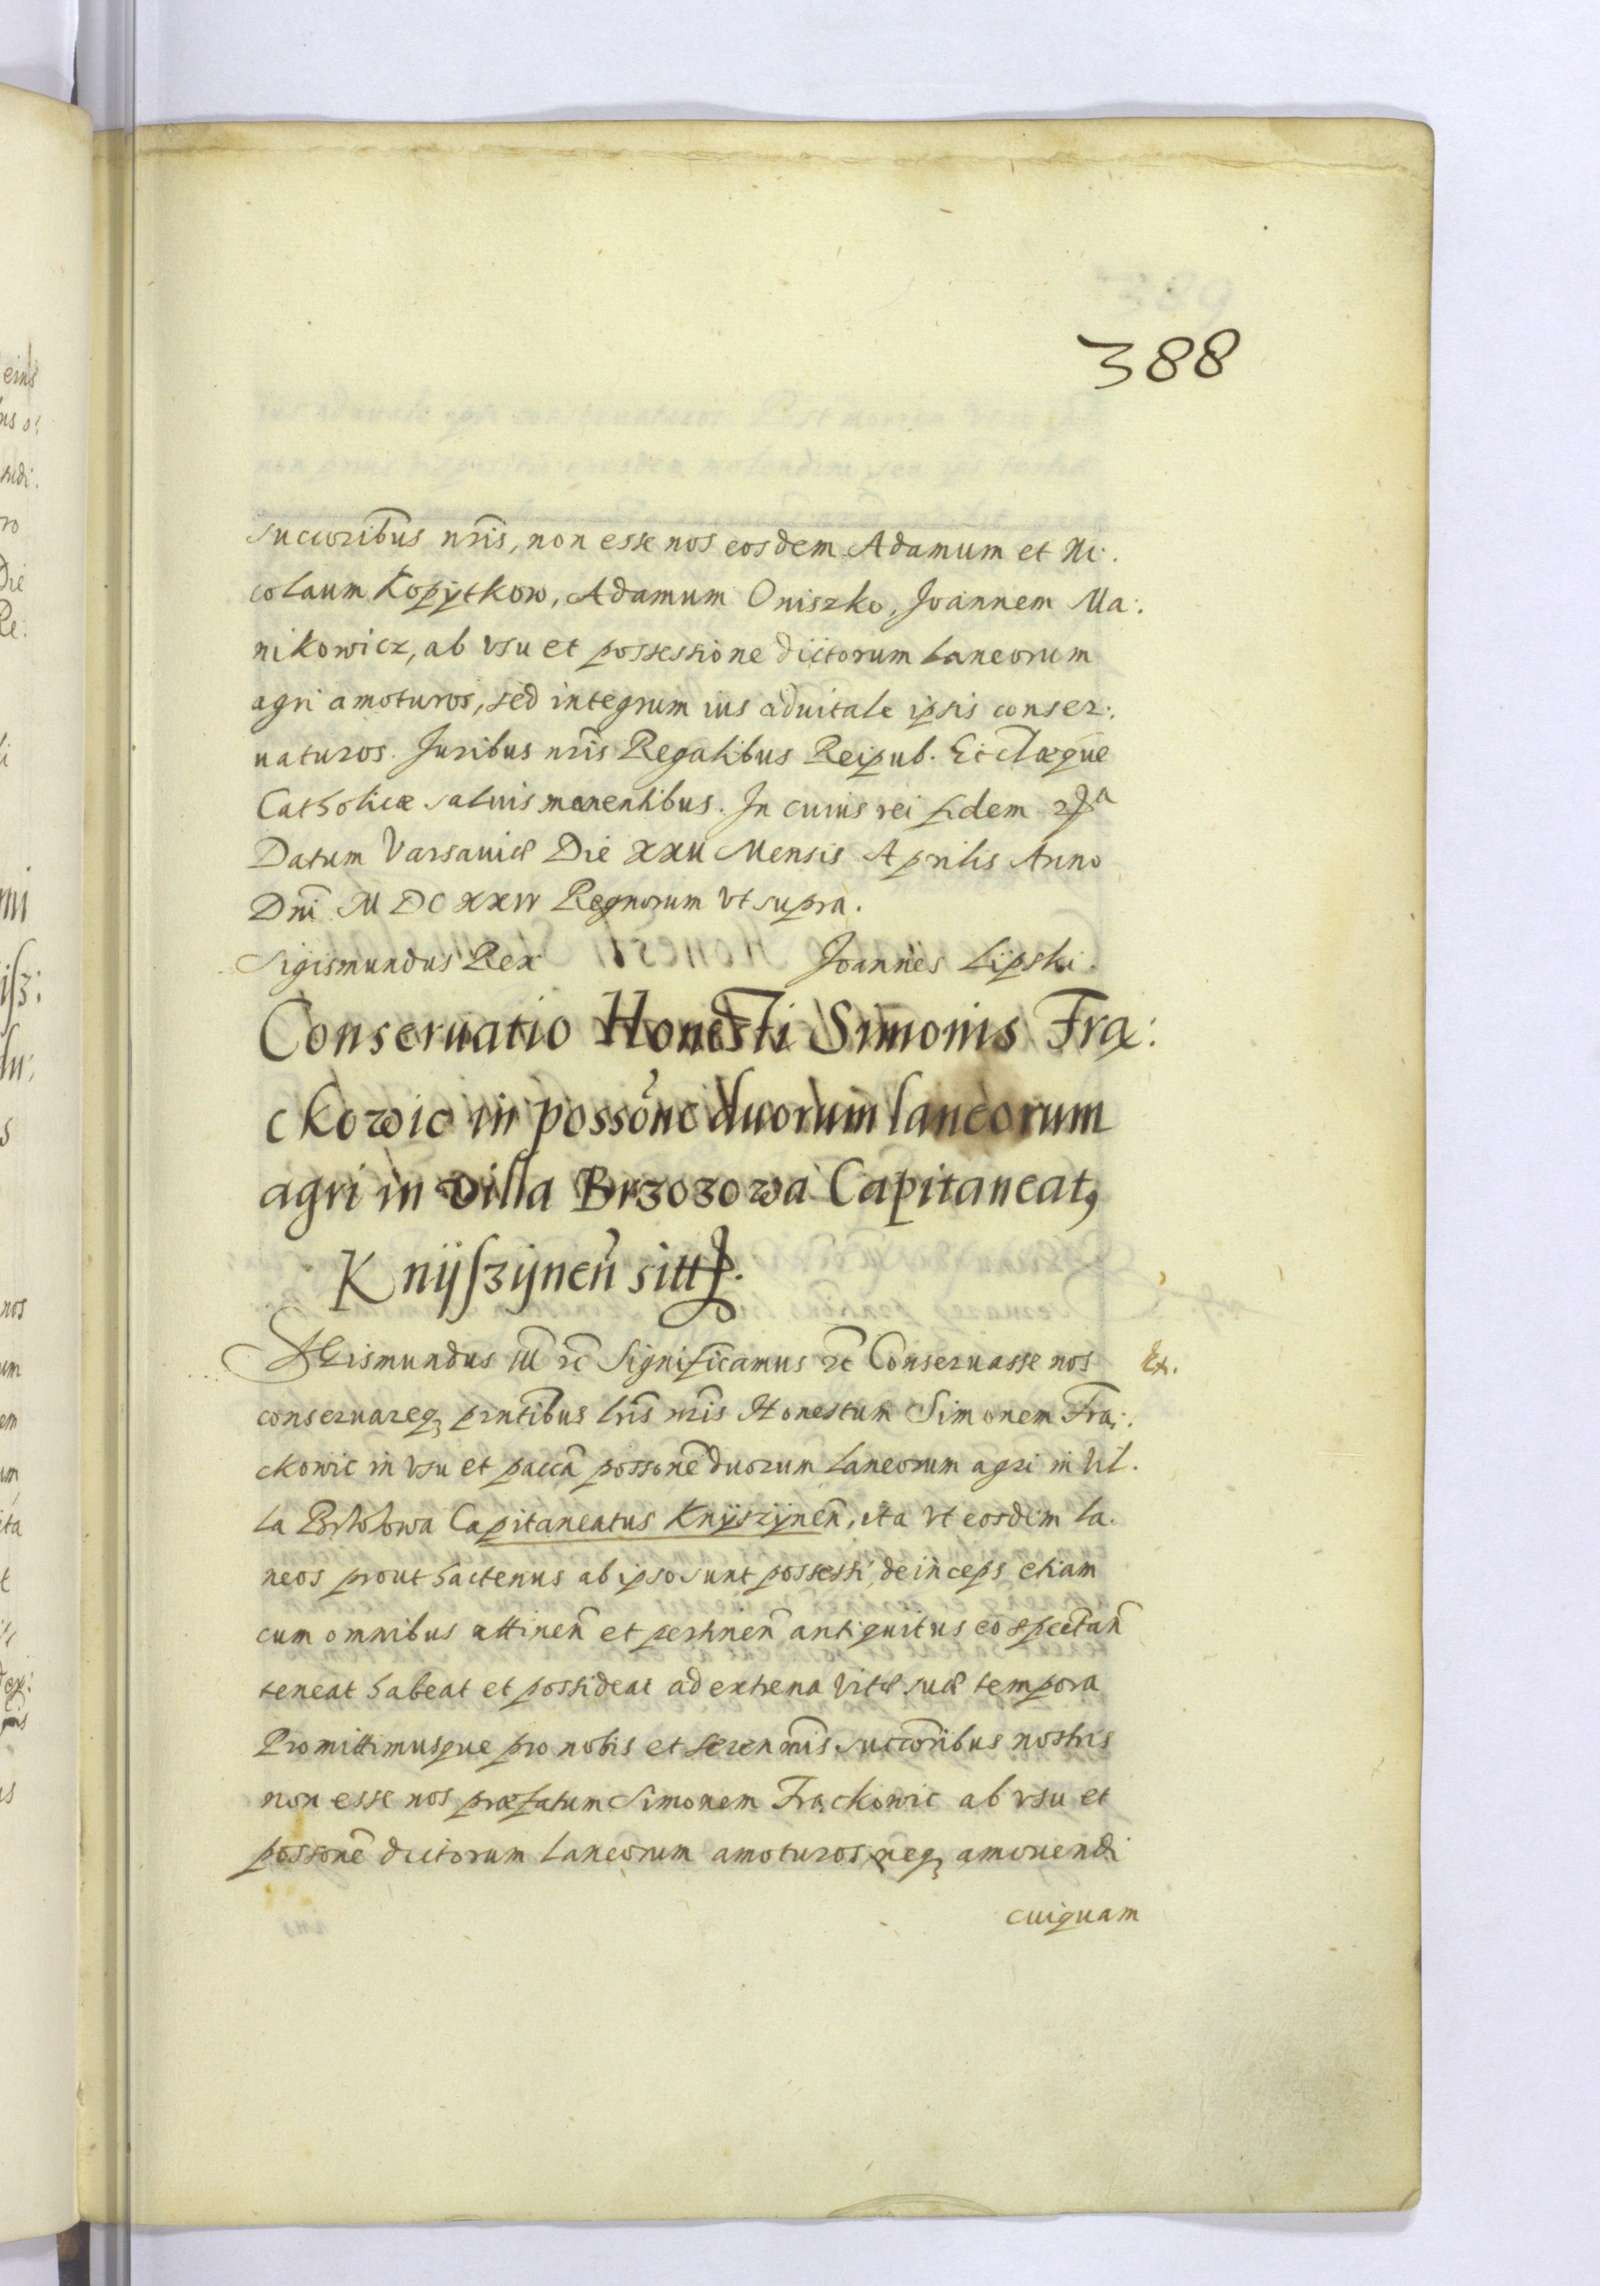 388
succoribus nris, non esse nos eosdem Adamum et Ni:
colaum Kopÿtkow, Adamum Oniszko, Joannem Ma:
nikowicz, ab vsu et possessione dictorum laneorum
agri amoturos, sed integrum ius aduitale ipsis conser:
uaturos. Juribus nris Regalibus Reipub. Ecclaeque
Catholicæ saluis manentibus. In cuius rei fidem
Datum Varsauiæ Die XXII Mensis Aprilis Anno
Dni M DC XXIV Regnorum vt supra.
Sigismundus Rex Joannes Lipski.
Conseruatio Honesti Simonis Frą:
ckowic in possone duorum laneorum
agri in villa Brzozowa Capitaneatus
Knÿszÿnen sitt
Sigismundus III rc Significamus rc Conseruasse nos Ex.
conseruareq prntibus lris nris Honestum Simonem Frą:
ckowic in vsu et pacca possone duorum laneorum agri in vil.
la Brzozowa Capitaneatus Knÿszÿnen, ita vt eosdem la.
neos prout hactenus ab ipso sunt possessi, deinceps etiam
cum omnibus attinen et pertinen antiquitus eo spectan
teneat habeat et possideat ad extrema vitæ suæ tempora
Promittimusque pro nobis et Serenmis succoribus nostris
non esse nos præfatum Simonem Frąckowic ab vsu et
possone dictorum laneorum amoturos, neq amouendi
cuiquam